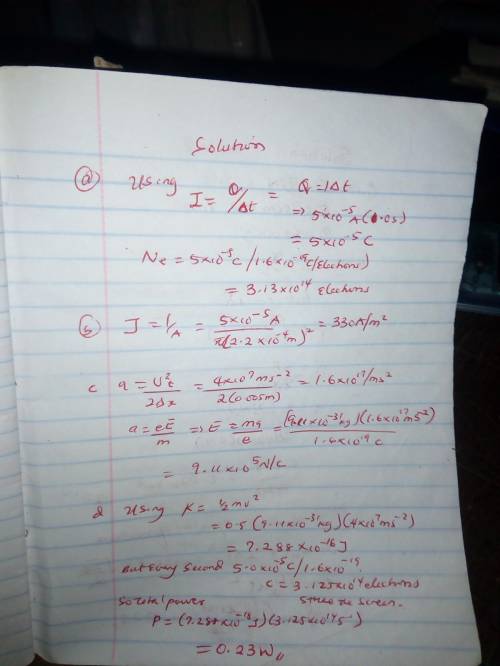 Solution
(a) Using I = Q/Δt = Q = IΔt
⇒ 5×10⁻⁵A(1.0s)
= 5×10⁻⁵C
Ne = 5×10⁻⁵C/1.6×10⁻¹⁹C/electrons)
= 3.13×10¹⁴ electrons
(b) J = I/A = 5×10⁻⁵A / π(2.2×10⁻⁴m)² = 330A/m²
c a = U²t / 2Δx = 4×10⁷ms⁻² / 2(0.005m) = 1.6×10¹⁷/ms²
a = eE/m ⇒ E = ma/e = (9.11×10⁻³¹kg)(1.6×10¹⁷ms²) / 1.6×10¹⁹C
= 9.11×10⁵N/C
d Using K = ½mv²
= 0.5(9.11×10⁻³¹kg)(4×10⁷ms⁻²)
= 7.288×10⁻¹⁶J
But every second 5.0×10⁻⁵C/1.6×10⁻¹⁹
C = 3.125×10¹⁴ electrons
So total power strike the screen.
P = (7.288×10⁻¹⁶J)(3.125×10¹⁴s⁻¹)
= 0.23W//